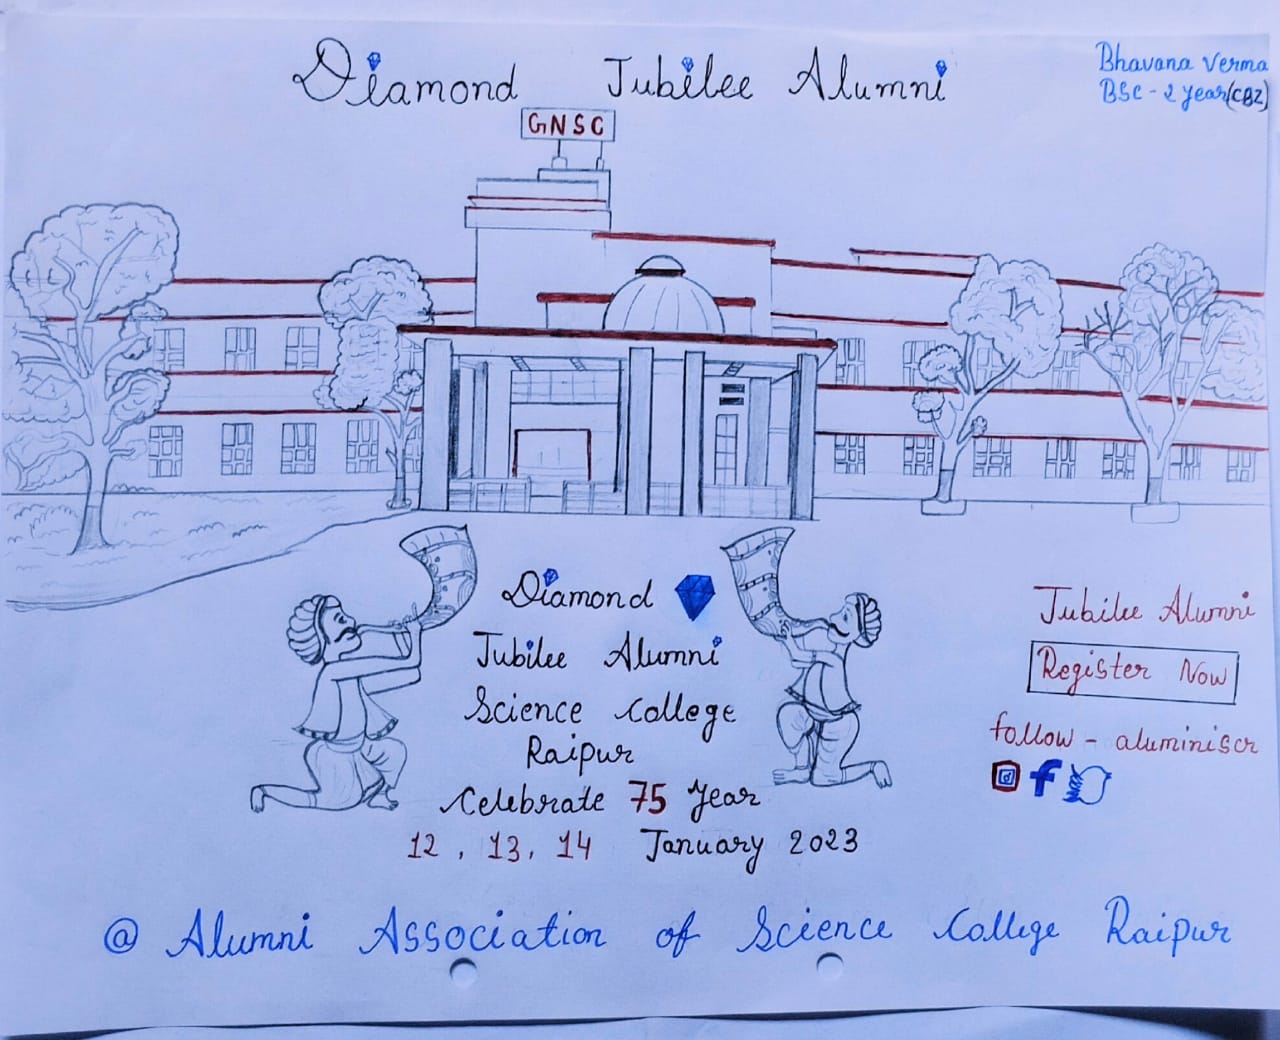 Diamond Jubilee Alumni
Bhavana Verma
BSc - 2 year (CBZ)
GNSC
Diamond
Jubilee Alumni
Science College
Raipur
Celebrate 75 Year
12, 13, 14 January 2023
Jubilee Alumni
Register Now
follow - aluminiscr
@ Alumni Association of Science College Raipur